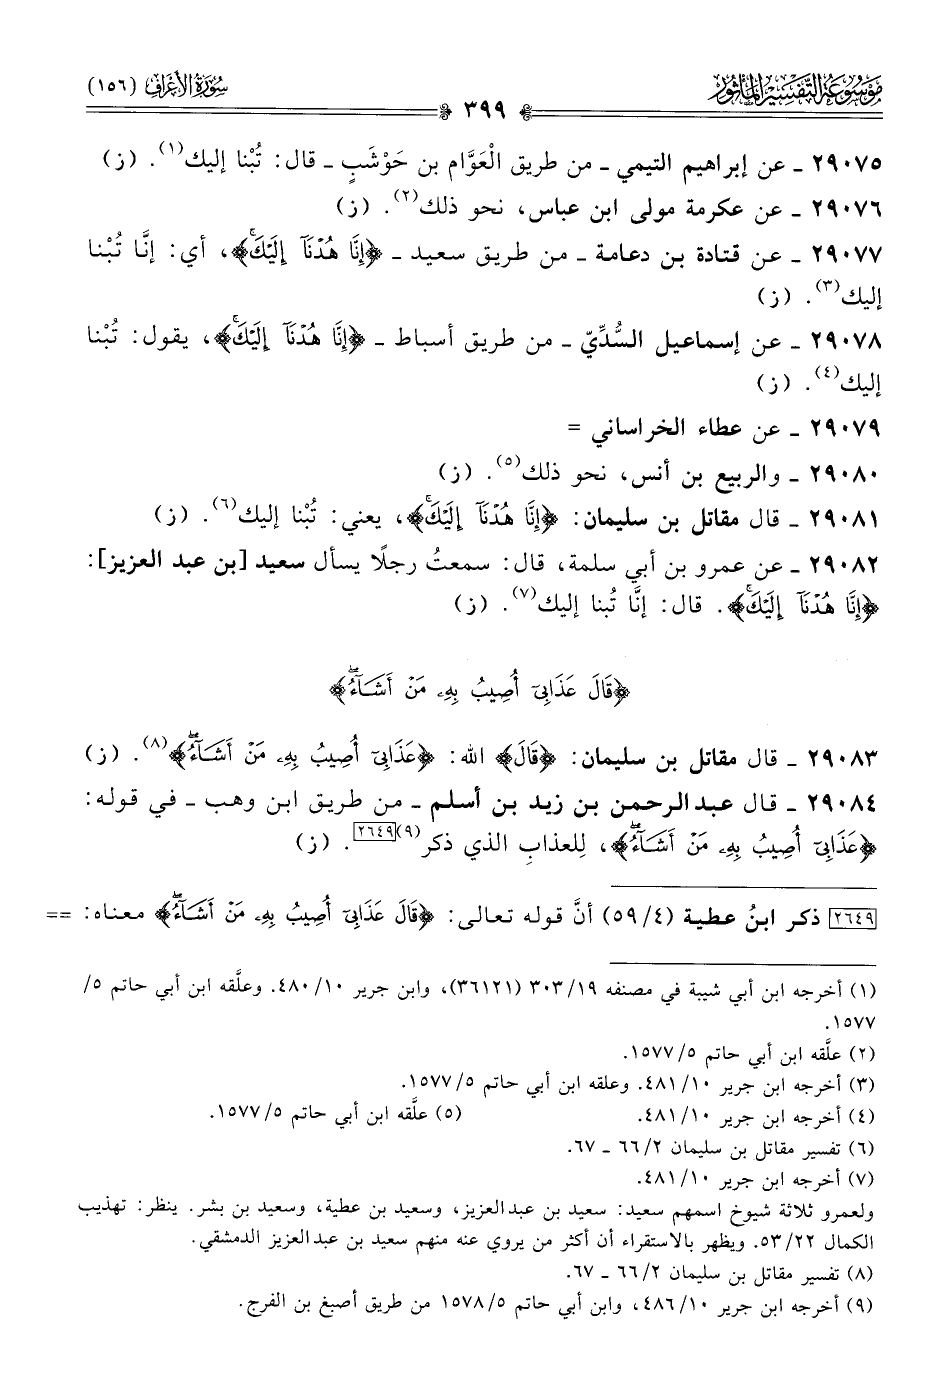 مَوْسُوعَةُ التَّفْسِيرِ المَأْثُورِ
سُورَةُ الأَعْرَافِ (١٥٦)
٣٩٩
٢٩٠٧٥ ـ عن إبراهيم التيمي ـ من طريق الْعَوَّام بن حَوْشَبٍ ـ قال: تُبْنا إليك(١). (ز)
٢٩٠٧٦ ـ عن عكرمة مولى ابن عباس، نحو ذلك(٢). (ز)
٢٩٠٧٧ ـ عن قتادة بن دعامة ـ من طريق سعيد ـ ﴿إِنَّا هُدْنَآ إِلَيْكَۚ﴾، أي: إنَّا تُبْنا
إليك(٣). (ز)
٢٩٠٧٨ ـ عن إسماعيل السُّدِّيّ ـ من طريق أسباط ـ ﴿إِنَّا هُدْنَآ إِلَيْكَۚ﴾، يقول: تُبْنا
إليك(٤). (ز)
٢٩٠٧٩ ـ عن عطاء الخراساني =
٢٩٠٨٠ ـ والربيع بن أنس، نحو ذلك(٥). (ز)
٢٩٠٨١ ـ قال مقاتل بن سليمان: ﴿إِنَّا هُدْنَآ إِلَيْكَۚ﴾، يعني: تُبْنا إليك(٦). (ز)
٢٩٠٨٢ ـ عن عمرو بن أبي سلمة، قال: سمعتُ رجلًا يسأل سعيد [بن عبد العزيز]:
﴿إِنَّا هُدْنَآ إِلَيْكَۚ﴾. قال: إنَّا تُبنا إليك(٧). (ز)
﴿قَالَ عَذَابِىٓ أُصِيبُ بِهِۦ مَنْ أَشَآءُۖ﴾
٢٩٠٨٣ ـ قال مقاتل بن سليمان: ﴿قَالَ﴾ الله: ﴿عَذَابِىٓ أُصِيبُ بِهِۦ مَنْ أَشَآءُۖ﴾(٨). (ز)
٢٩٠٨٤ ـ قال عبد الرحمن بن زيد بن أسلم ـ من طريق ابن وهب ـ في قوله:
﴿عَذَابِىٓ أُصِيبُ بِهِۦ مَنْ أَشَآءُۖ﴾، لِلعذابِ الذي ذكر(٩)[٢٦٤٩]. (ز)
[٢٦٤٩] ذكر ابنُ عطية (٥٩/٤) أنَّ قوله تعالى: ﴿قَالَ عَذَابِىٓ أُصِيبُ بِهِۦ مَنْ أَشَآءُۖ﴾ معناه: ==
(١) أخرجه ابن أبي شيبة في مصنفه ٣٠٣/١٩ (٣٦١٢١)، وابن جرير ٤٨٠/١٠. وعلَّقه ابن أبي حاتم ٥/
١٥٧٧.
(٢) علَّقه ابن أبي حاتم ١٥٧٧/٥.
(٣) أخرجه ابن جرير ٤٨١/١٠. وعلقه ابن أبي حاتم ١٥٧٧/٥.
(٤) أخرجه ابن جرير ٤٨١/١٠. (٥) علَّقه ابن أبي حاتم ١٥٧٧/٥.
(٦) تفسير مقاتل بن سليمان ٦٦/٢ ـ ٦٧.
(٧) أخرجه ابن جرير ٤٨١/١٠.
ولعمرو ثلاثة شيوخ اسمهم سعيد: سعيد بن عبد العزيز، وسعيد بن عطية، وسعيد بن بشر. ينظر: تهذيب
الكمال ٥٣/٢٢. ويظهر بالاستقراء أن أكثر من يروي عنه منهم سعيد بن عبد العزيز الدمشقي.
(٨) تفسير مقاتل بن سليمان ٦٦/٢ ـ ٦٧.
(٩) أخرجه ابن جرير ٤٨٦/١٠، وابن أبي حاتم ١٥٧٨/٥ من طريق أصبغ بن الفرج.